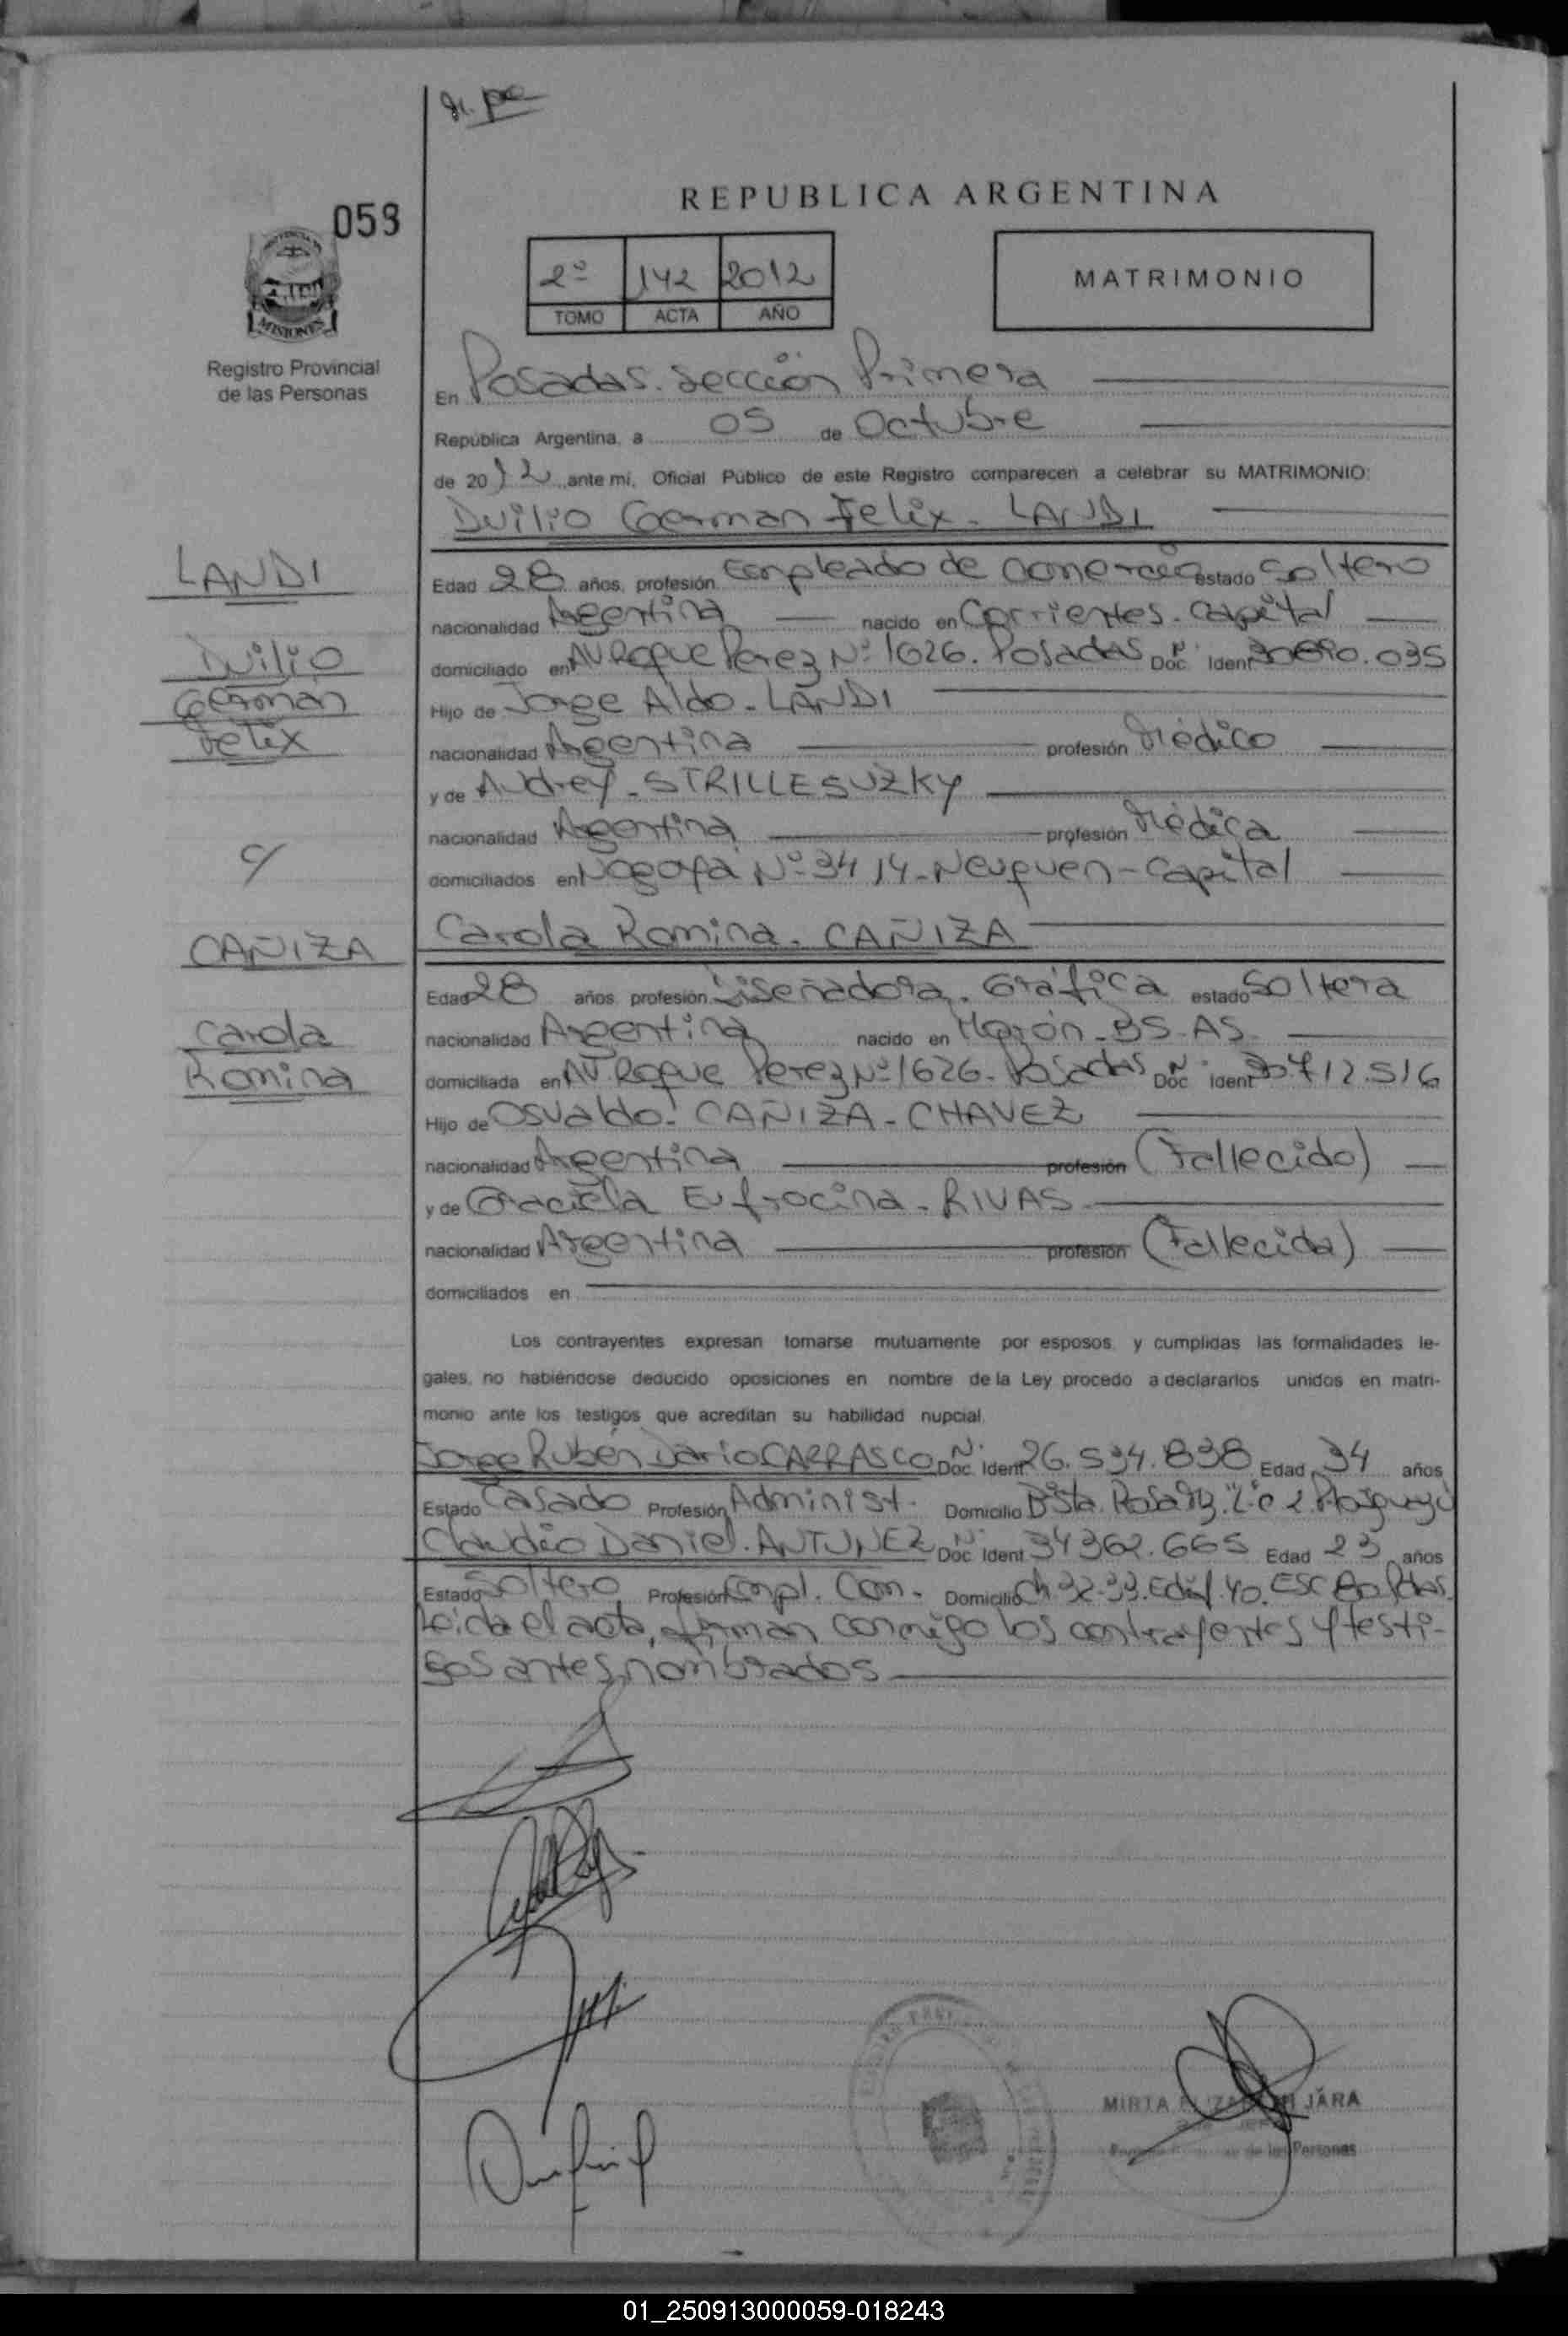 059
MISIONES
Registro Provincial
de las Personas
REPUBLICA ARGENTINA
2º 142 2012
TOMO ACTA AÑO
MATRIMONIO
En Posadas. Sección Primera
República Argentina, a 05 de Octubre
de 2012, ante mi, Oficial Público de este Registro comparecen a celebrar su MATRIMONIO:
Duilio German Felix - LANDI
Edad 28 años, profesión Empleado de Comercio estado Soltero
nacionalidad Argentina nacido en Corrientes. Capital
domiciliado en AV Roque Perez Nº 1626. Posadas Doc. Ident. Nº 30690.035
Hijo de Jorge Aldo - LANDI
nacionalidad Argentina profesión Médico
y de Audrey - STRILLESUZKY
nacionalidad Argentina profesión Médica
domiciliados en Nogoyá Nº 3414 - Neuquen - Capital
Carola Romina. CAÑIZA
Edad 28 años, profesión Diseñadora. Gráfica estado Soltera
nacionalidad Argentina nacido en Morón - BS - AS
domiciliada en AV. Roque Perez Nº 1626 - Posadas Doc. Ident. Nº 30712.516
Hijo de Osvaldo - CAÑIZA - CHAVEZ
nacionalidad Argentina profesión (Fallecido)
y de Graciela Eufrocina - RIVAS
nacionalidad Argentina profesión (Fallecida)
domiciliados en
Los contrayentes expresan tomarse mutuamente por esposos, y cumplidas las formalidades le-
gales, no habiéndose deducido oposiciones en nombre de la Ley procedo a declararlos unidos en matri-
monio ante los testigos que acreditan su habilidad nupcial.
Jorge Rubén Dario CARRASCO Doc. Ident. Nº 26.534.838 Edad 34 años
Estado Casado Profesión Administ. Domicilio
Claudio Daniel. ANTUNEZ Doc. Ident. Nº 34362.665 Edad 23 años
Estado Soltero Profesión Empl. Com. Domicilio Ch. 32-33. Edif. 40. ESC
Leida el acta, firman conmigo los contrayentes y testi-
gos antes nombrados
LANDI
Duilio
German
Felix
c/
CAÑIZA
Carola
Romina
MIRTA ELIZABETH JARA
de las Personas
01_250913000059-018243